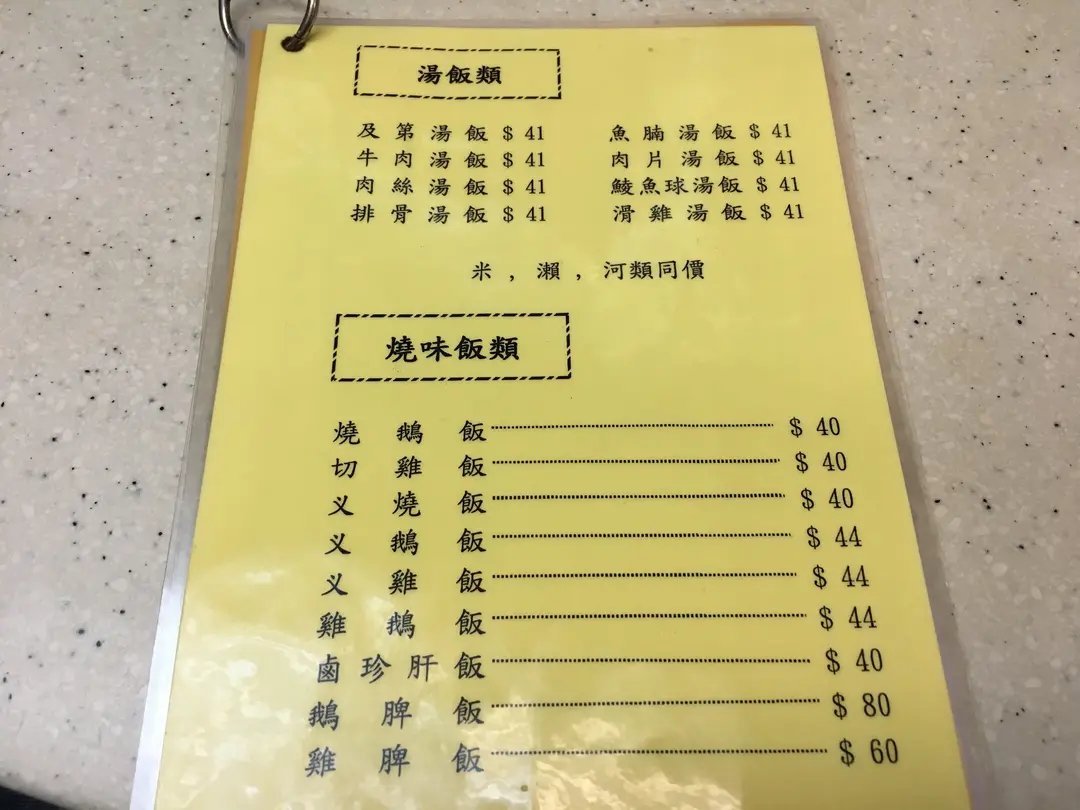 湯飯類
及第湯飯 $ 41 魚腩湯飯 $ 41
牛肉湯飯 $ 41 肉片湯飯 $ 41
肉絲湯飯 $ 41 鯪魚球湯飯 $ 41
排骨湯飯 $ 41 滑雞湯飯 $ 41
米，瀨，河類同價
燒味飯類
燒鵝飯 $ 40
切雞飯 $ 40
义燒飯 $ 40
义鵝飯 $ 44
义雞飯 $ 44
雞鵝飯 $ 44
鹵珍肝飯 $ 40
鵝脾飯 $ 80
雞脾飯 $ 60